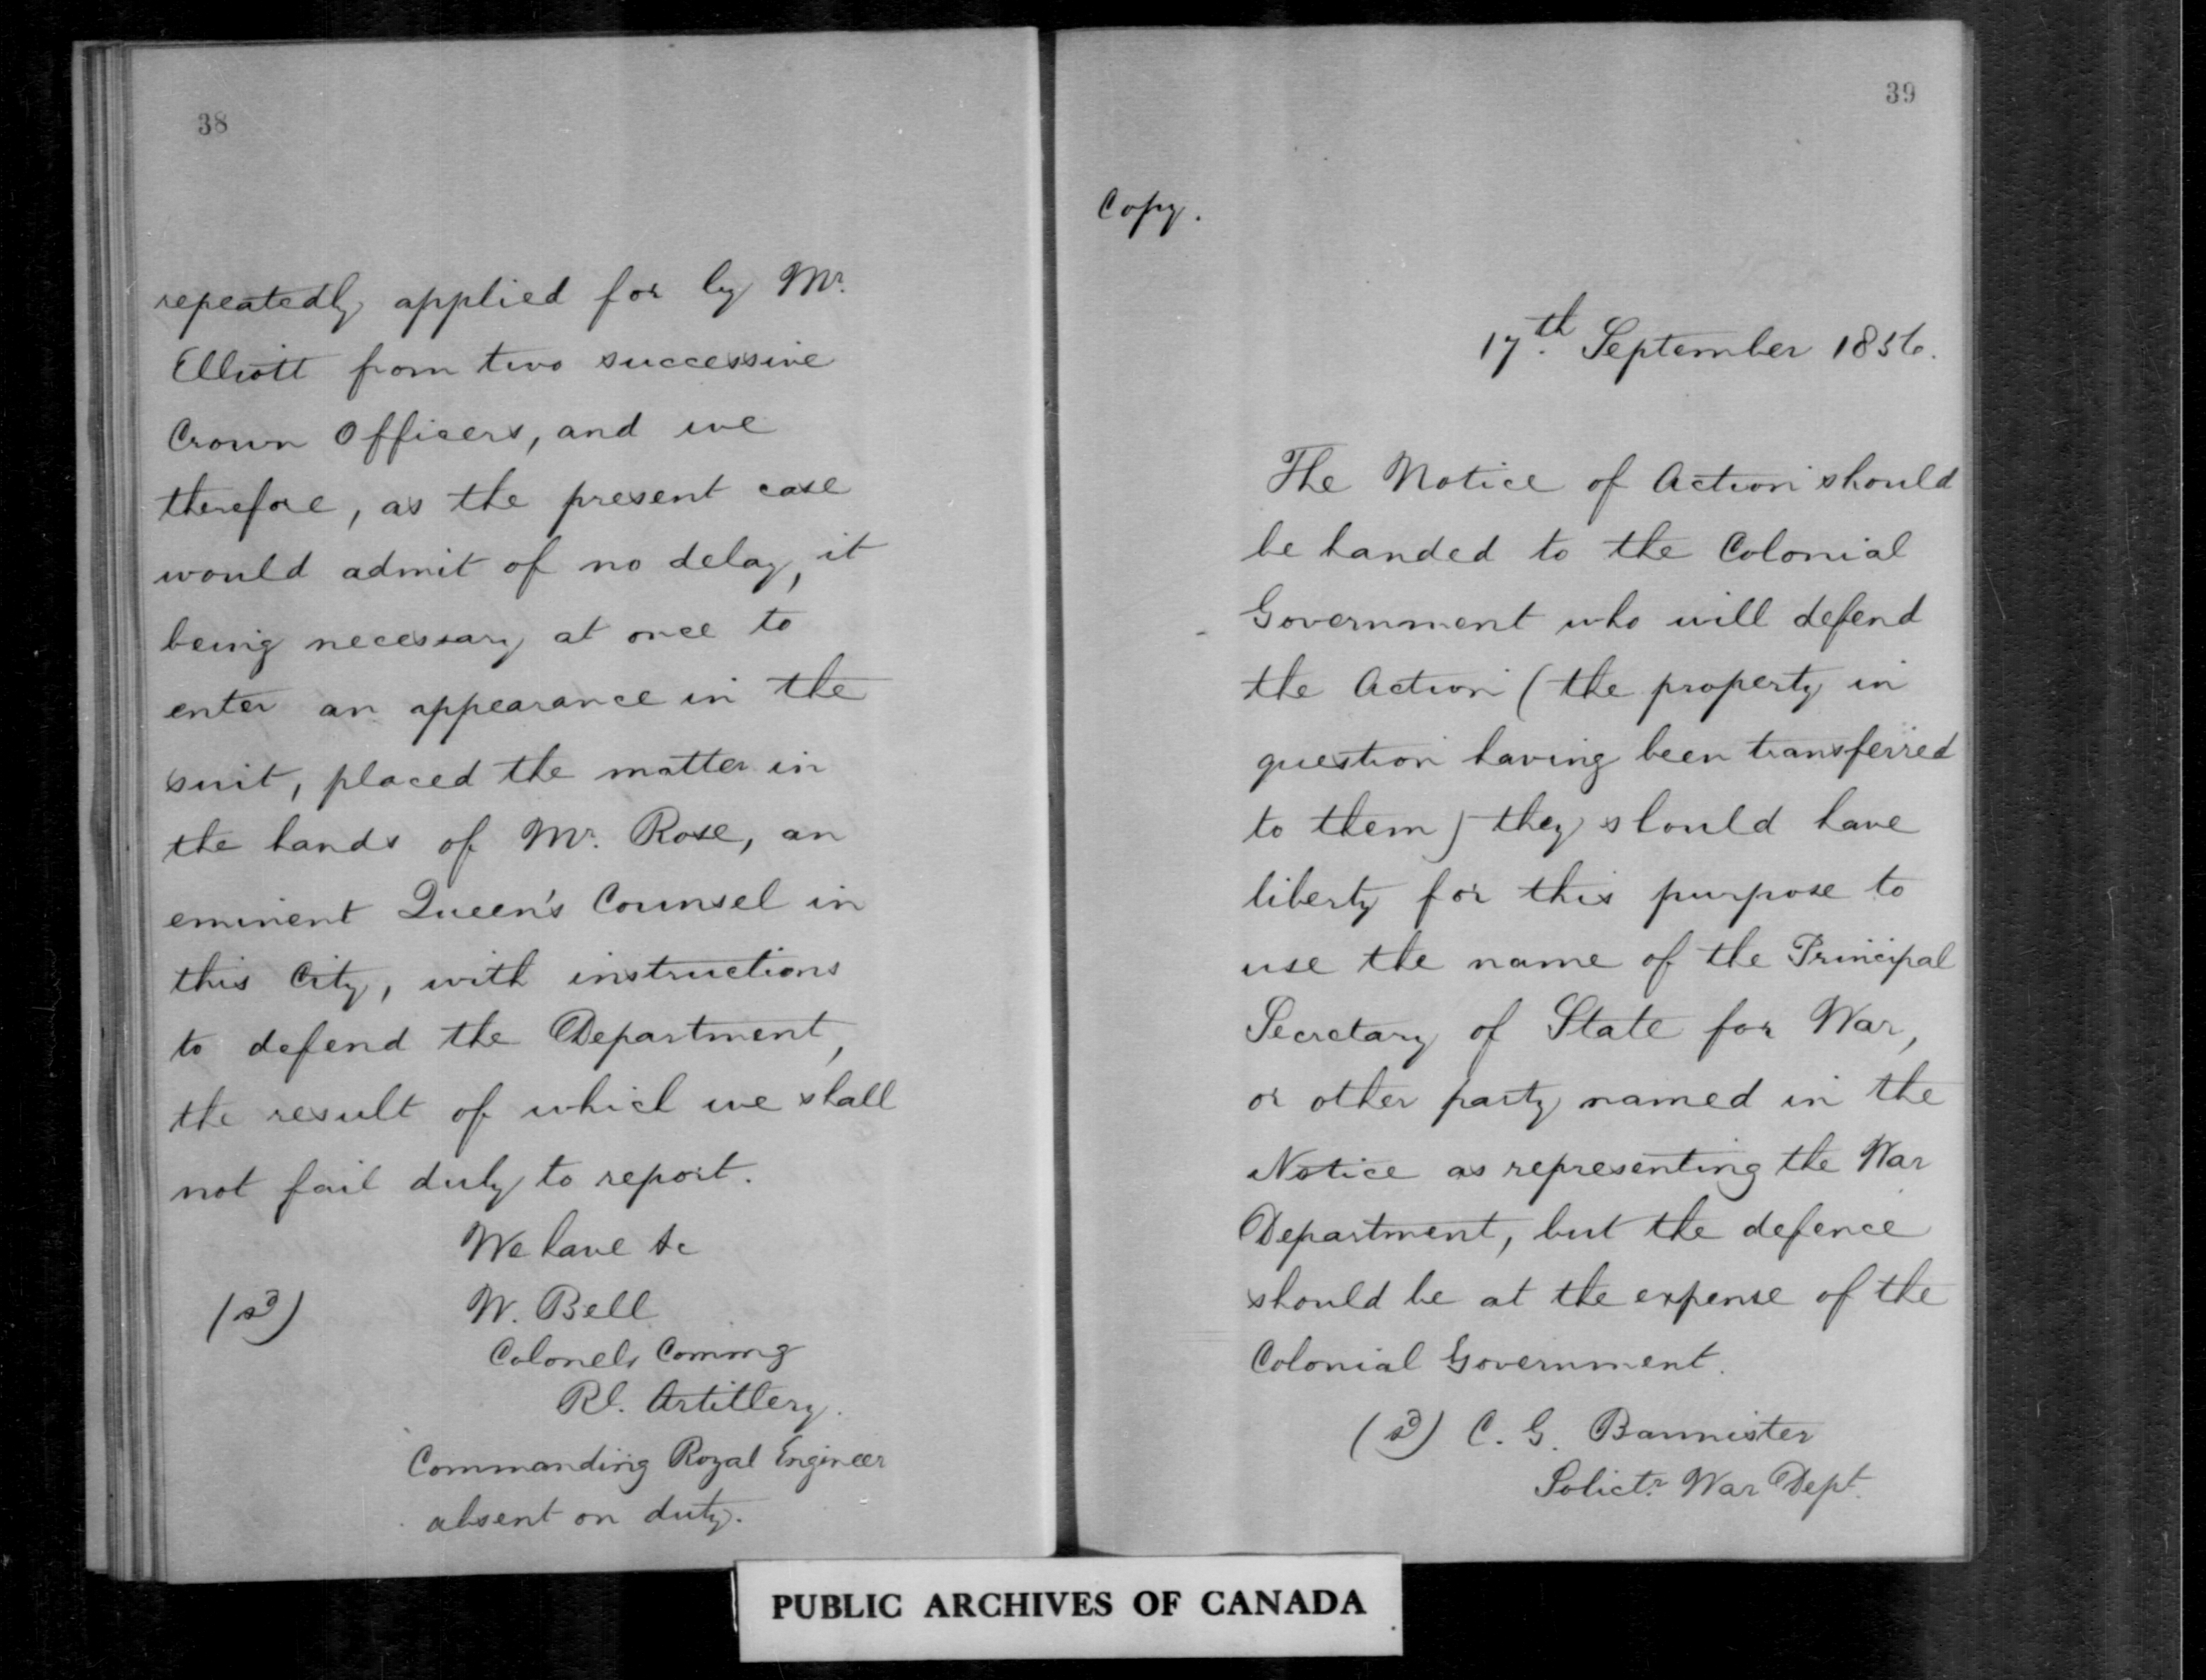 38
repeatedly applied for by Mr.
Elliott from two successive
Crown Officers, and we
therefore, as the present case
would admit of no delay, it
being necessary at once to
enter an appearance in the
suit, placed the matter in
the hands of Mr. Rose, an
eminent Queen's Counsel in
this City, with instructions
to defend the Department,
the result of which we shall
not fail duly to report.
We have &c
(sd) W. Bell
Colonel, Commg
Rl. Artillery.
Commanding Royal Engineer
absent on duty.
39
Copy.
17th. September 1856.
The Notice of Action should
be handed to the Colonial
Government who will defend
the Action (the property in
question having been transferred
to them) they should have
liberty for this purpose to
use the name of the Principal
Secretary of State for War,
or other party named in the
Notice as representing the War
Department, but the defence
should be at the expense of the
Colonial Government.
(sd) C. G. Bannister
Solictr. War Dept.
PUBLIC ARCHIVES OF CANADA